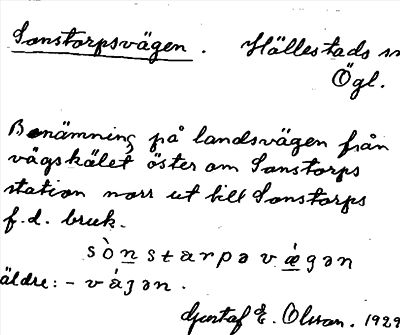 Sonstorpsvägen. Hällestads sn
Ögl.
Benämning på landsvägen från
vägskälet öster om Sonstorps
station norr ut till Sonstorps
f.d. bruk.
sònstarpəvǽgən
äldre: - vǽgən.
Gustaf E. Olsson. 1929